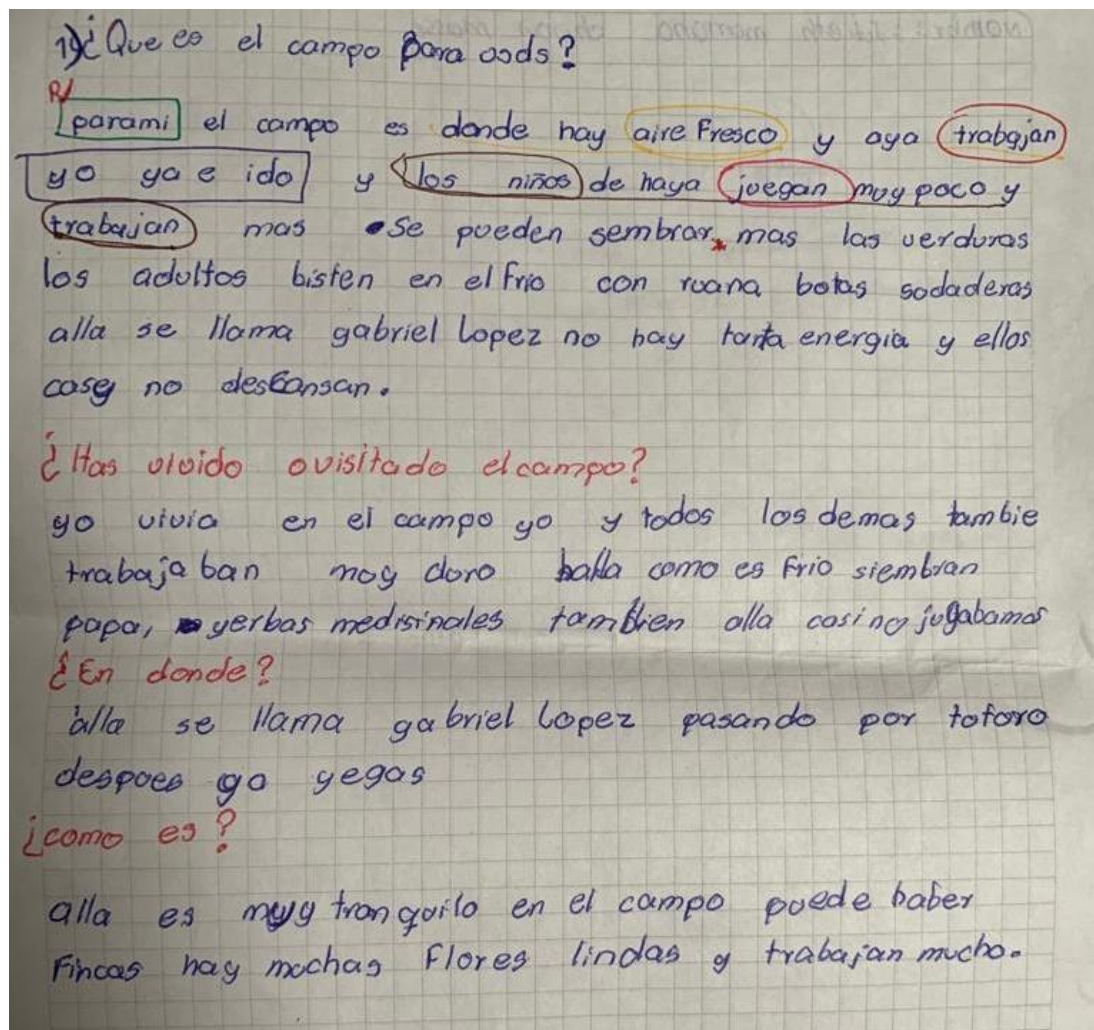 1) ¿Que es el campo para osds?
R/
parami el campo es donde hay aire Fresco y aya trabajan
yo ya e ido y los niños de haya juegan muy poco y
trabajan mas se pueden sembrar mas las verduras
los adultos bisten en el frio con ruana botas sodaderas
alla se llama gabriel lopez no hay tanta energia y ellos
casy no descansan.
¿Has vivido o visitado el campo?
yo vivia en el campo yo y todos los demas tambie
trabajaban muy duro halla como es frio siembran
papa, yerbas medisinales tambien alla casi no jugabamos
¿En donde?
alla se llama gabriel lopez pasando por totoro
despues ya yegas
¿como es?
alla es muy tranquilo en el campo puede haber
Fincas hay muchas Flores lindas y trabajan mucho.